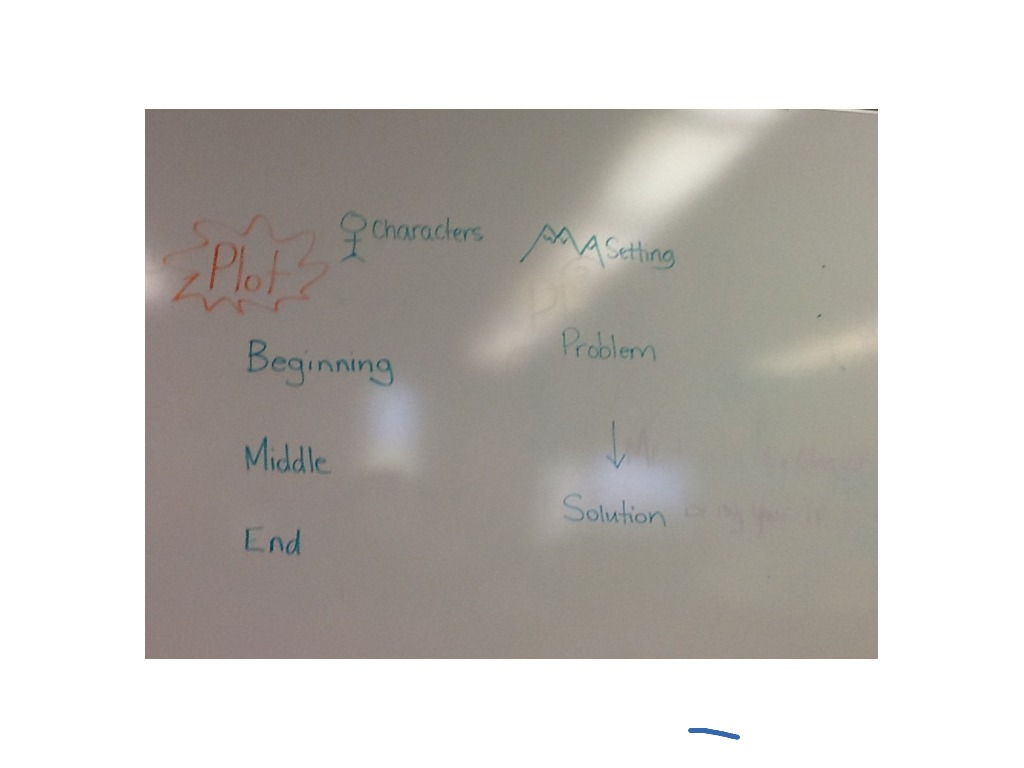 Plot
Characters
Setting
Beginning
Problem
Middle
Solution
End